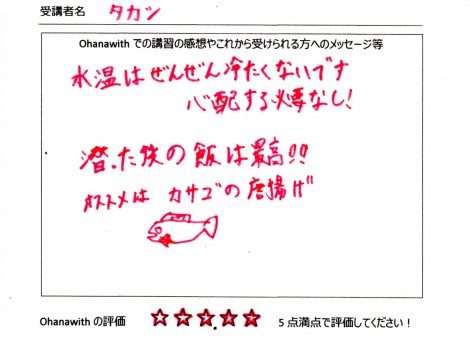 受講者名 タカシ
Ohanawith での講習の感想やこれから受けられる方へのメッセージ等
水温はぜんぜん冷たくないです
心配する必要なし!
潜った後の飯は最高!!
オススメは カサゴの唐揚げ
Ohanawith の評価 ☆☆☆☆☆ 5 点満点で評価してください!